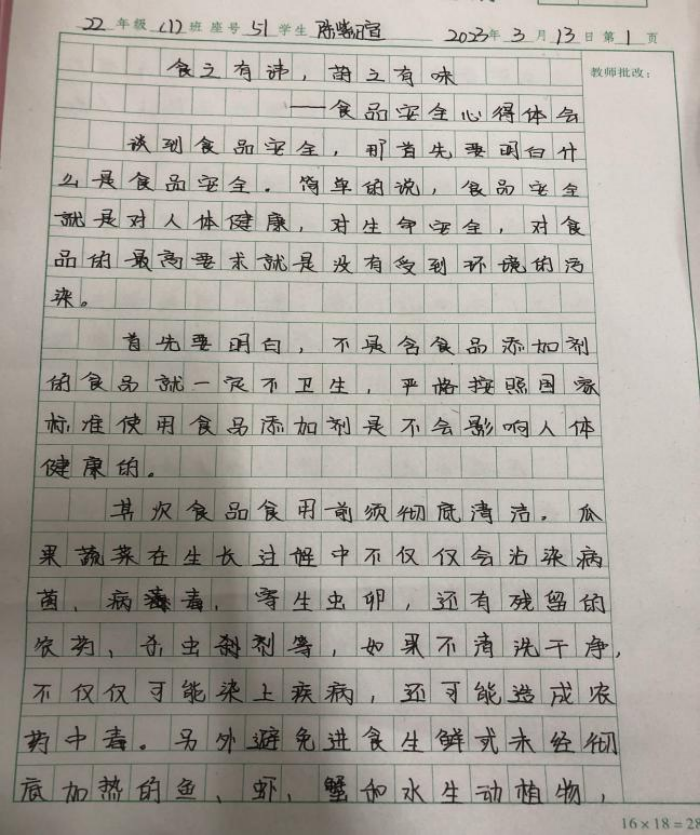 22年级(1)班座号51学生陈紫瑄 2023年3月13日第1页
教师批改:
食之有讳，苗之有味
——食品安全心得体会
谈到食品安全，那首先要明白什
么是食品安全。简单的说，食品安全
就是对人体健康，对生命安全，对食
品的最高要求就是没有受到环境的污
染。
首先要明白，不是含食品添加剂
的食品就一定不卫生，严格按照国家
标准使用食品添加剂是不会影响人体
健康的。
其次食品食用前须彻底清洁。瓜
果蔬菜在生长过程中不仅仅会沾染病
菌、病毒、寄生虫卵，还有残留的
农药、杀虫剂等，如果不清洗干净，
不仅仅可能染上疾病，还可能造成农
药中毒。另外避免进食生鲜或未经彻
底加热的鱼、虾、蟹和水生动植物，
16×18=28